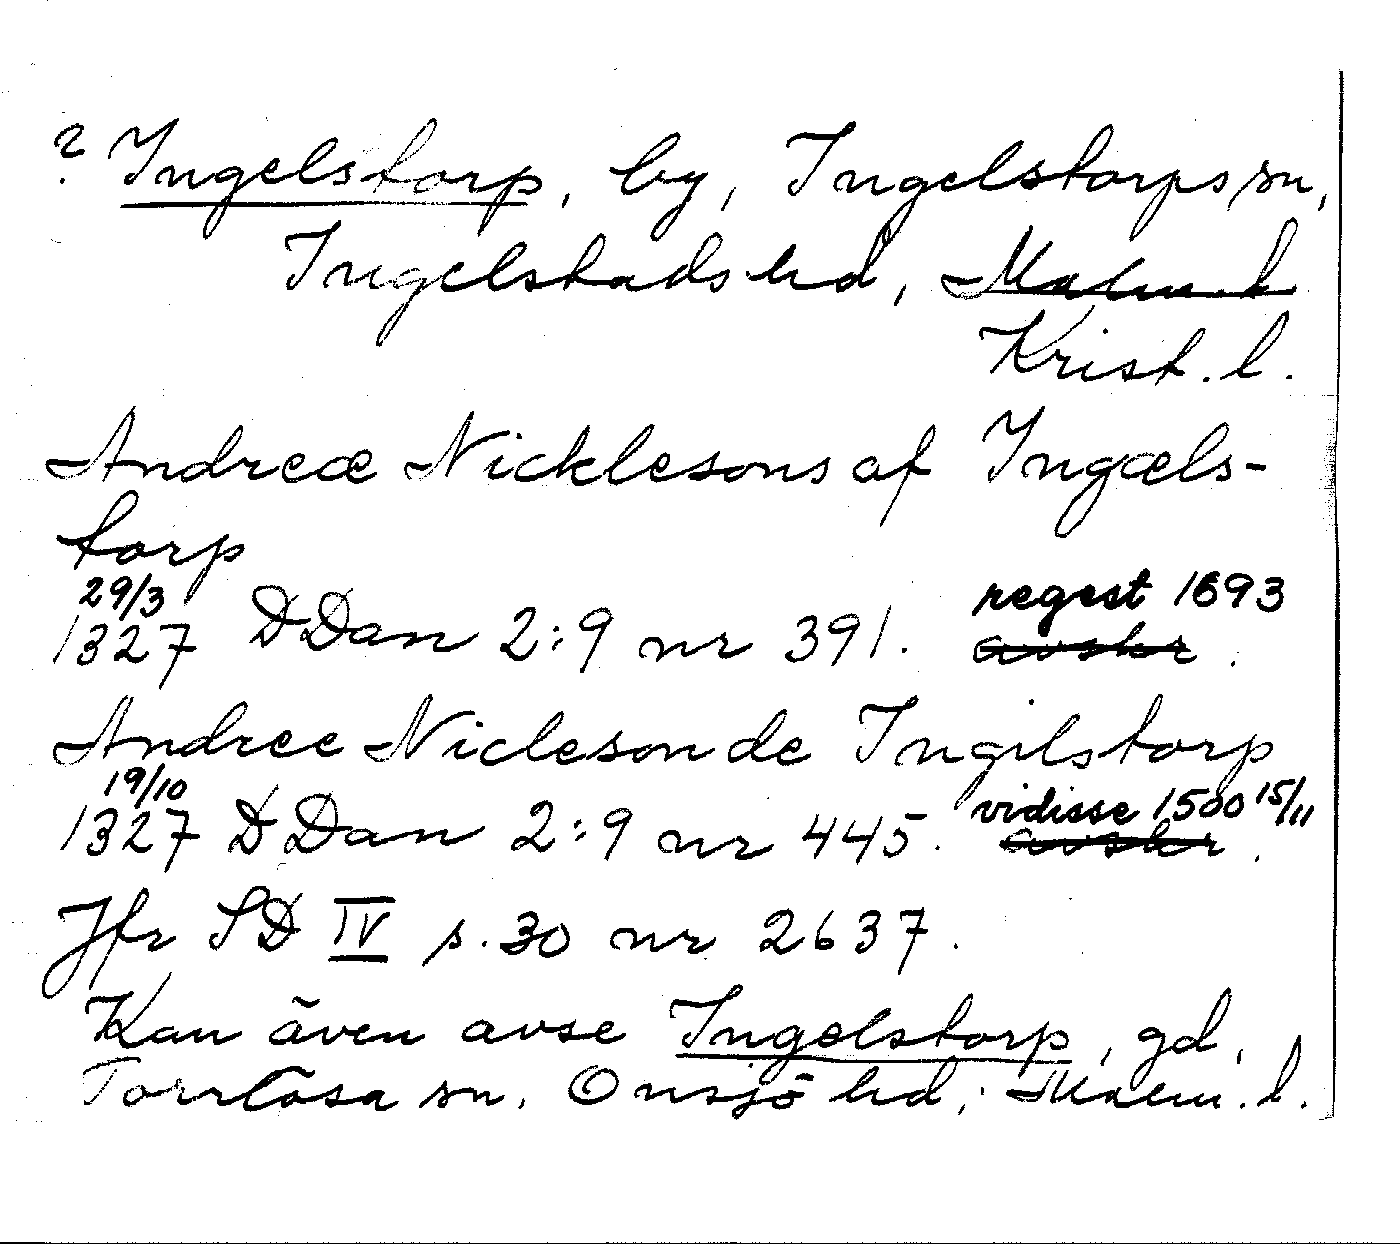 ? Ingelstorp, by, Ingelstorps sn,
Ingelstads hd, Malm. l
Krist. l.
Andreæ Nicklesons af Ingæls-
torp
29/3 regest 1693
1327 DDan 2:9 nr 391. avskr.
Andree Nicleson de Ingilstorp
19/10 vidisse 1500 15/11
1327 DDan 2:9 nr 445. avskr.
Jfr SD IV s. 30 nr 2637.
Kan även avse Ingelstorp, gd,
Torrlösa sn, Onsjö hd, Malm. l.